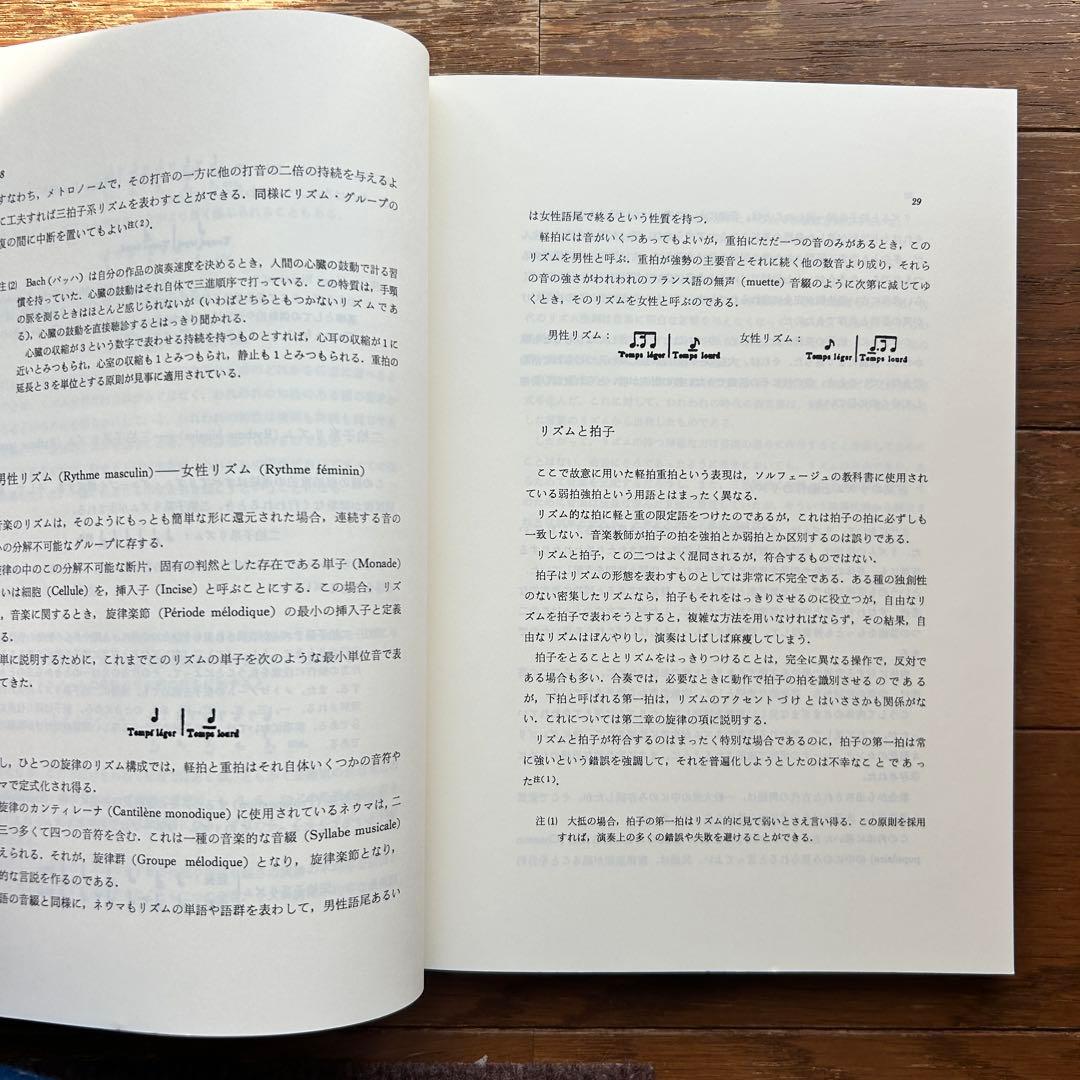 8
すなわち，メトロノームで，その打音の一方に他の打音の二倍の持続を与えるよ
に工夫すれば三拍子系リズムを表わすことができる．同様にリズム・グループの
復の間に中断を置いてもよい注(2)．
注(2) Bach（バッハ）は自分の作品の演奏速度を決めるとき，人間の心臓の鼓動で計る習
慣を持っていた．心臓の鼓動はそれ自体で三進順序で打っている．この特質は，手頸
の脈を測るときはほとんど感じられないが（いわばどちらともつかないリズムであ
る)，心臓の鼓動を直接聴診するとはっきり聞かれる．
心臓の収縮が3という数字で表わせる持続を持つものとすれば，心耳の収縮が1に
近いとみつもられ，心室の収縮も1とみつもられ，静止も1とみつもられる．重拍の
延長と3を単位とする原則が見事に適用されている．
男性リズム (Rythme masculin)——女性リズム (Rythme féminin)
音楽のリズムは，そのようにもっとも簡単な形に還元された場合，連続する音の
の分解不可能なグループに存する．
旋律の中のこの分解不可能な断片，固有の判然とした存在である単子 (Monade)
いは細胞 (Cellule) を，挿入子 (Incise) と呼ぶことにする．この場合，リズ
，音楽に関するとき，旋律楽節 (Période mélodique) の最小の挿入子と定義
る．
単に説明するために，これまでこのリズムの単子を次のような最小単位音で表
てきた．
Temps léger Temps lourd
し，ひとつの旋律のリズム構成では，軽拍と重拍はそれ自体いくつかの音符や
マで定式化され得る．
旋律のカンティレーナ (Cantilène monodique) に使用されているネウマは，二
三つ多くて四つの音符を含む．これは一種の音楽的な音綴 (Syllabe musicale)
えられる．それが，旋律群 (Groupe mélodique) となり，旋律楽節となり，
的な言説を作るのである．
語の音綴と同様に，ネウマもリズムの単語や語群を表わして，男性語尾あるい
29
は女性語尾で終るという性質を持つ．
軽拍には音がいくつあってもよいが，重拍にただ一つの音のみがあるとき，この
リズムを男性と呼ぶ．重拍が強勢の主要音とそれに続く他の数音より成り，それら
の音の強さがわれわれのフランス語の無声 (muette) 音綴のように次第に減じてゆ
くとき，そのリズムを女性と呼ぶのである．
男性リズム： Temps léger Temps lourd 女性リズム： Temps léger Temps lourd
リズムと拍子
ここで故意に用いた軽拍重拍という表現は，ソルフェージュの教科書に使用され
ている弱拍強拍という用語とはまったく異なる．
リズム的な拍に軽と重の限定語をつけたのであるが，これは拍子の拍に必ずしも
一致しない．音楽教師が拍子の拍を強拍とか弱拍とか区別するのは誤りである．
リズムと拍子，この二つはよく混同されるが，符合するものではない．
拍子はリズムの形態を表わすものとしては非常に不完全である．ある種の独創性
のない密集したリズムなら，拍子もそれをはっきりさせるのに役立つが，自由なリ
ズムを拍子で表わそうとすると，複雑な方法を用いなければならず，その結果，自
由なリズムはぼんやりし，演奏はしばしば麻痺してしまう．
拍子をとることとリズムをはっきりつけることは，完全に異なる操作で，反対で
ある場合も多い．合奏では，必要なときに動作で拍子の拍を識別させるのであ る
が，下拍と呼ばれる第一拍は，リズムのアクセントづけとはいささかも関係がな
い．これについては第二章の旋律の項に説明する．
リズムと拍子が符合するのはまったく特別な場合であるのに，拍子の第一拍は常
に強いという錯誤を強調して，それを普遍化しようとしたのは不幸なことであっ
た注(1)．
注(1) 大抵の場合，拍子の第一拍はリズム的に見て弱いとさえ言い得る．この原則を採用
すれば，演奏上の多くの錯誤や失敗を避けることができる．